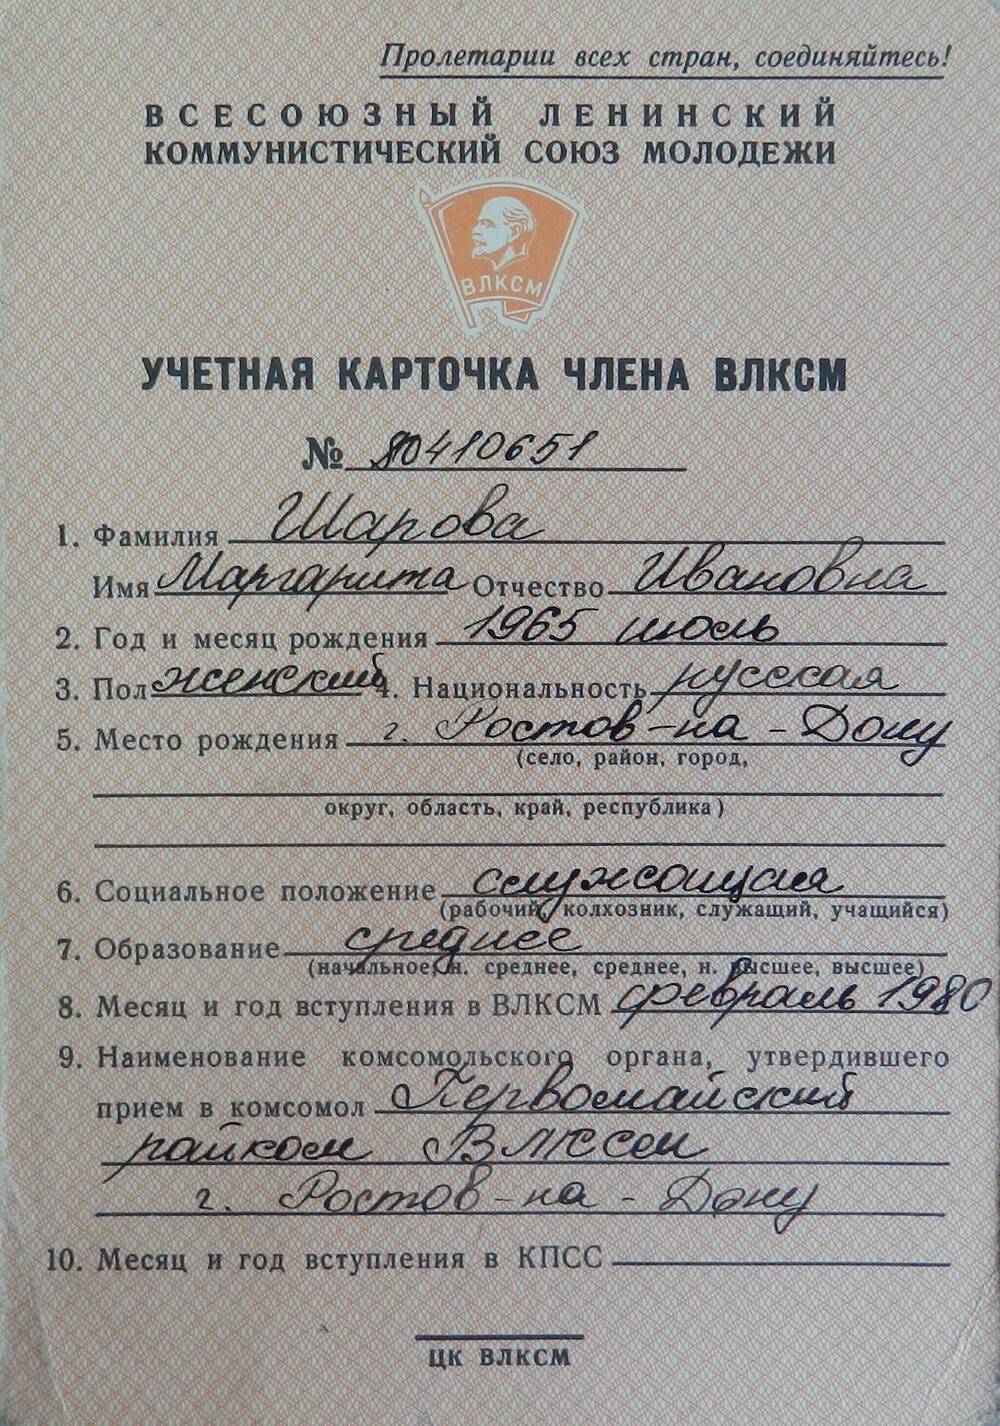 Пролетарии всех стран, соединяйтесь!
ВСЕСОЮЗНЫЙ ЛЕНИНСКИЙ
КОММУНИСТИЧЕСКИЙ СОЮЗ МОЛОДЕЖИ
ВЛКСМ
УЧЕТНАЯ КАРТОЧКА ЧЛЕНА ВЛКСМ
№ 80410651
1. Фамилия Шарова
Имя Маргарита Отчество Ивановна
2. Год и месяц рождения 1965 июль
3. Пол женский 4. Национальность русская
5. Место рождения г. Ростов-на-Дону
(село, район, город,
округ, область, край, республика)
6. Социальное положение служащая
(рабочий, колхозник, служащий, учащийся)
7. Образование среднее
(начальное, н. среднее, среднее, н. высшее, высшее)
8. Месяц и год вступления в ВЛКСМ февраль 1980
9. Наименование комсомольского органа, утвердившего
прием в комсомол Первомайский
райком ВЛКСМ
г. Ростов-на-Дону
10. Месяц и год вступления в КПСС
ЦК ВЛКСМ